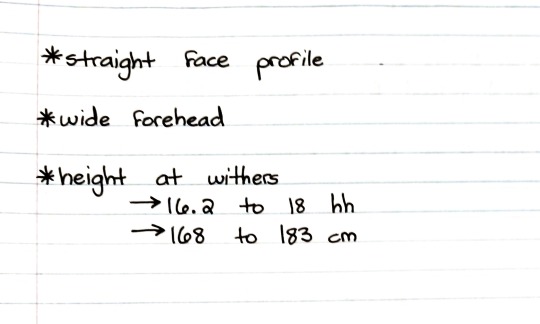 *straight face profile
*wide forehead
*height at withers
→16.2 to 18 hh
→168 to 183 cm